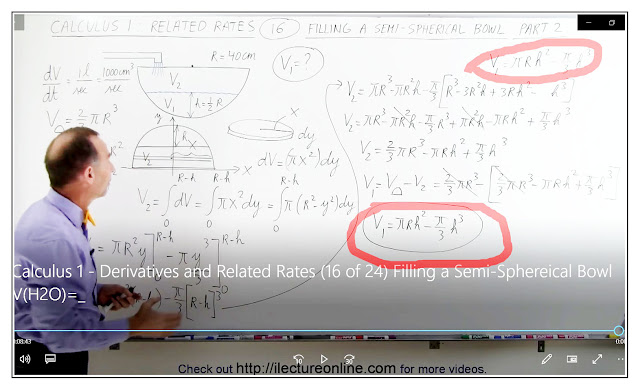 CALCULUS 1 - RELATED RATES (16) FILLING A SEMI-SPHERICAL BOWL PART 2
dV/dt = 1l/sec = 1000cm³/sec
R = 40cm
V₁ = ?
V₂
V₁
h = ½R
V = 2/3 πR³
y
x
R-h
V₂
x
dy
dV = (πx²)dy
V₂ = ∫₀^(R-h) dV = ∫₀^(R-h) πx²dy = ∫₀^(R-h) π(R²-y²)dy
= πR²y]^(R-h) - πy³/3]₀^(R-h)
- π/3 [R-h]³
V₁ = πRh² - π/3 h³
V₂ = πR³ - πR²h - π/3 [R³ - 3R²h + 3Rh² - h³]
V₂ = πR³ - πR²h - π/3 R³ + πR²h - πRh² + π/3 h³
V₂ = 2/3 πR³ - πRh² + π/3 h³
V₁ = V - V₂ = 2/3 πR³ - [2/3 πR³ - πRh² + π/3 h³]
V₁ = πRh² - π/3 h³
Calculus 1 - Derivatives and Related Rates (16 of 24) Filling a Semi-Sphereical Bowl
V(H2O)=_
:08:43
0:0
10
30
Check out http://ilectureonline.com for more videos.